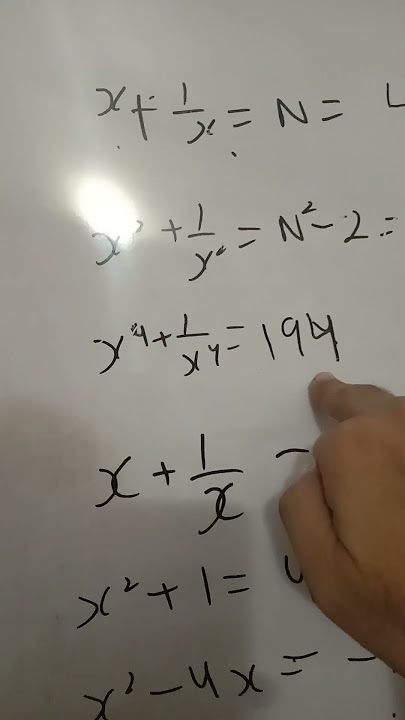 x + 1/x = N =
x² + 1/x² = N² - 2 =
x⁴ + 1/x⁴ = 194
x + 1/x
x² + 1 =
x² - 4x = -